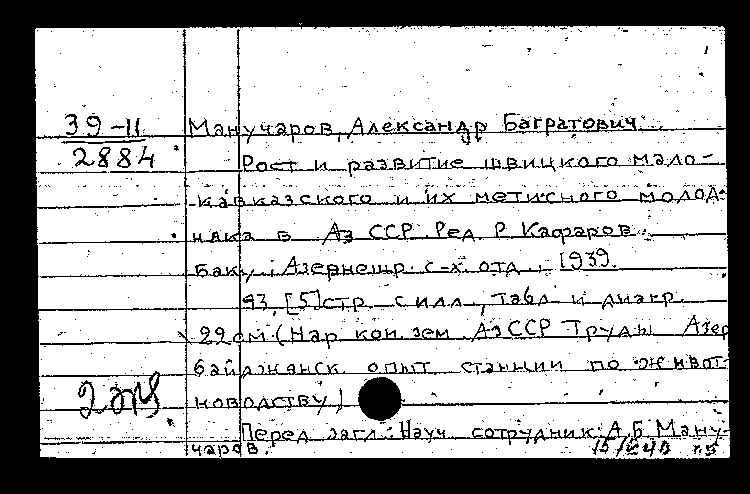 39-11
2884
Манучаров, Александр Багратович.
Рост и развитие швицкого мало-
кавказского и их метисного молод-
няка в Аз ССР. Ред. Р. Кафаров.
Баку, Азернешр. с-х. отд., 1939.
93, [5] стр. с илл., табл. и диагр.
22 см. (Нар. ком. зем. АзССР. Труды Азер-
байджанск. опыт. станции по живот-
новодству)
Перед загл.: Науч. сотрудник А.Б. Ману-
чаров.